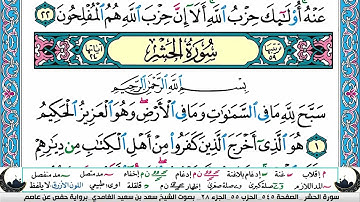 عَنْهُ أُو۟لَٰٓئِكَ حِزْبُ ٱللَّهِ أَلَآ إِنَّ حِزْبَ ٱللَّهِ هُمُ ٱلْمُفْلِحُونَ ٢٢
سُورَةُ الحَشْرِ
بِسْمِ ٱللَّهِ ٱلرَّحْمَٰنِ ٱلرَّحِيمِ
سَبَّحَ لِلَّهِ مَا فِى ٱلسَّمَٰوَٰتِ وَمَا فِى ٱلْأَرْضِ وَهُوَ ٱلْعَزِيزُ ٱلْحَكِيمُ
١ هُوَ ٱلَّذِىٓ أَخْرَجَ ٱلَّذِينَ كَفَرُوا۟ مِنْ أَهْلِ ٱلْكِتَٰبِ مِن دِيَٰرِهِمْ
سورة الحشر . الصفحة ٥٤٥ . الحزب ٥٥ . الجزء ٢٨ . بصوت الشيخ سعد بن سعيد الغامدي . برواية حفص عن عاصم